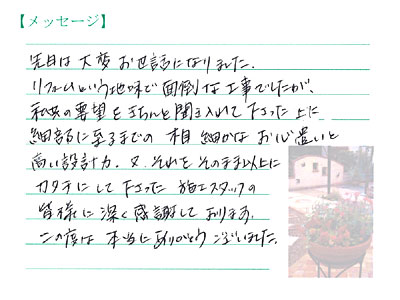 【メッセージ】
先日は大変お世話になりました。
リフォームという地味で面倒な工事でしたが、
私共の要望をきちんと聞き入れて下さった上に
細部に至るまでの 相 細かなお心遣いと
高い設計力、又、それをそのまま以上に
カタチにして下さった 施工スタッフの
皆様に深く感謝しております。
この度は本当にありがとうございました。